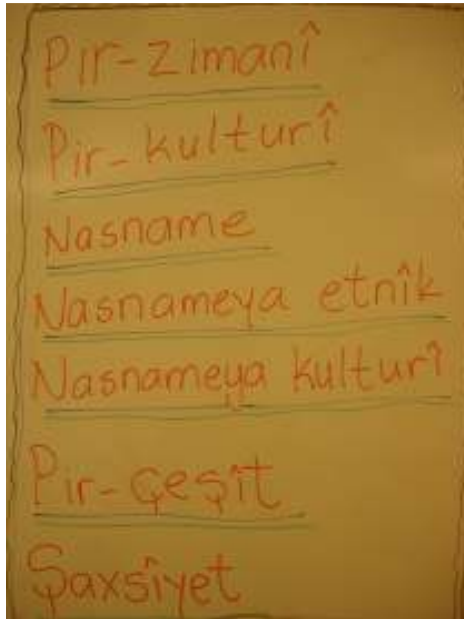 Pir-zimanî
Pir-kulturî
Nasname
Nasnameya etnîk
Nasnameya kulturî
Pir-çeşît
Şaxsîyet